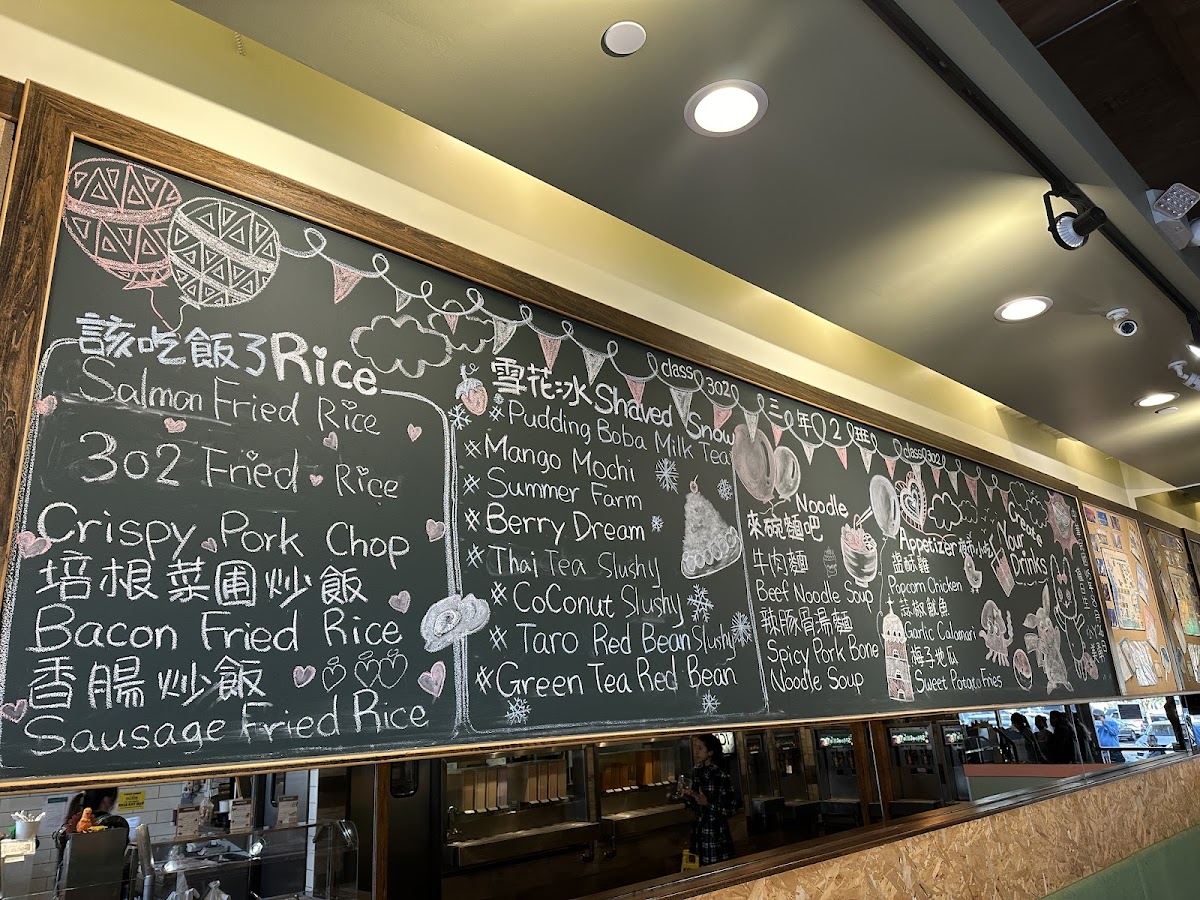 該吃飯了Rice
Salmon Fried Rice
302 Fried Rice
Crispy Pork Chop
培根菜圃炒飯
Bacon Fried Rice
香腸炒飯
Sausage Fried Rice
雪花冰 Shaved Snow
Pudding Boba Milk Tea
Mango Mochi
Summer Farm
Berry Dream
Thai Tea Slushy
CoConut Slushy
Taro Red Bean Slushy
Green Tea Red Bean
class 302 三年2班 class 302
Noodle
來碗麵吧
牛肉麵
Beef Noodle Soup
辣豚骨湯麵
Spicy Pork Bone
Noodle Soup
Appetizer
鹽酥雞
Popcorn Chicken
蒜椒魷魚
Garlic Calamari
梅子地瓜
Sweet Potato Fries
Create
Your
Drinks